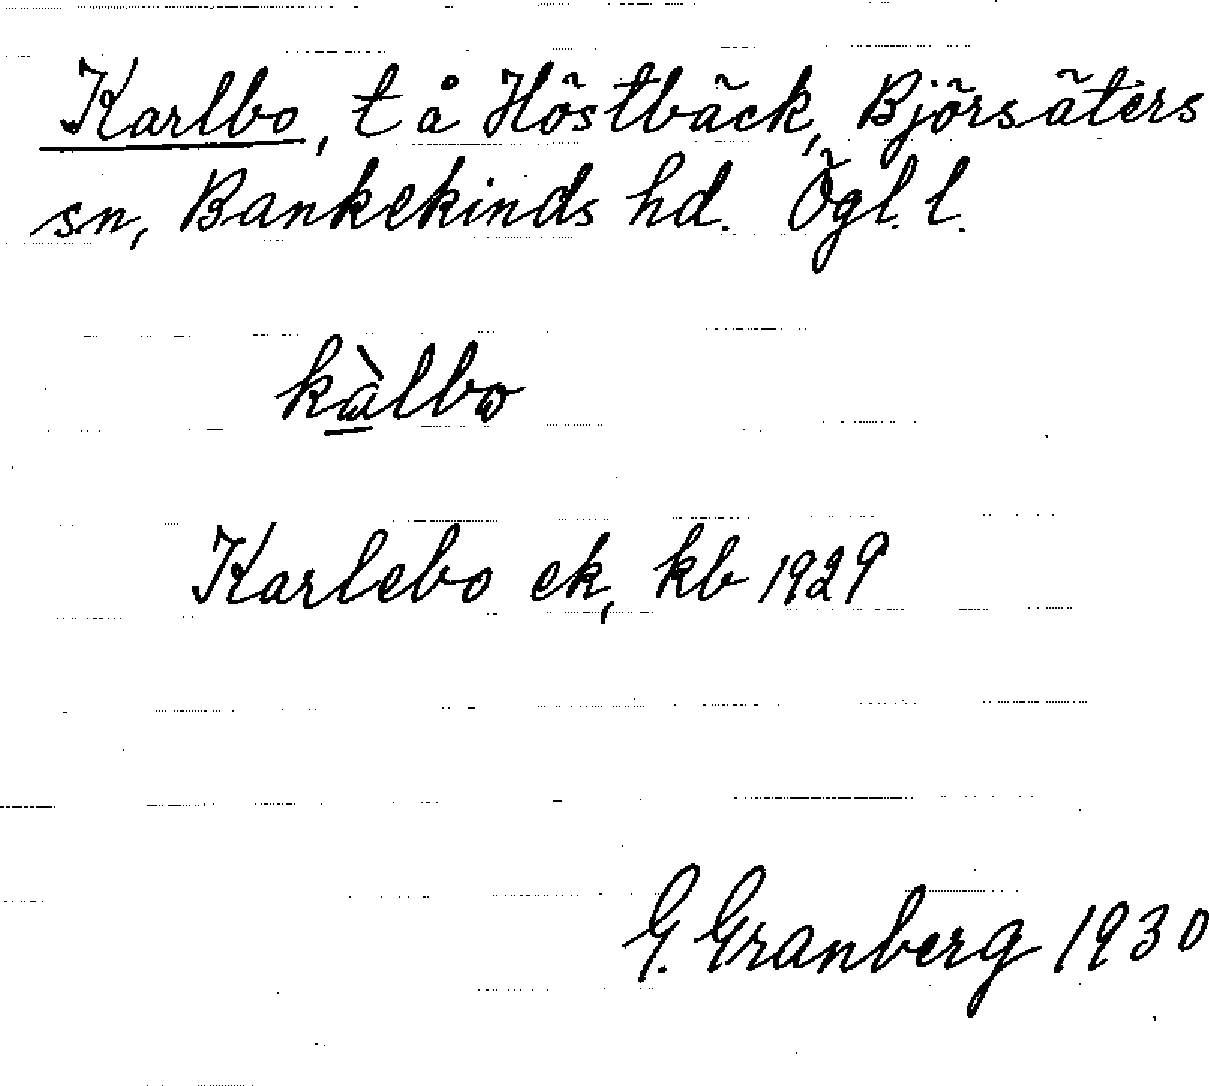 Karlbo, t å Höstbäck, Björsäters
sn, Bankekinds hd. Ögl. l.
kàlbo
Karlebo ek, kb 1929
G. Granberg 1930